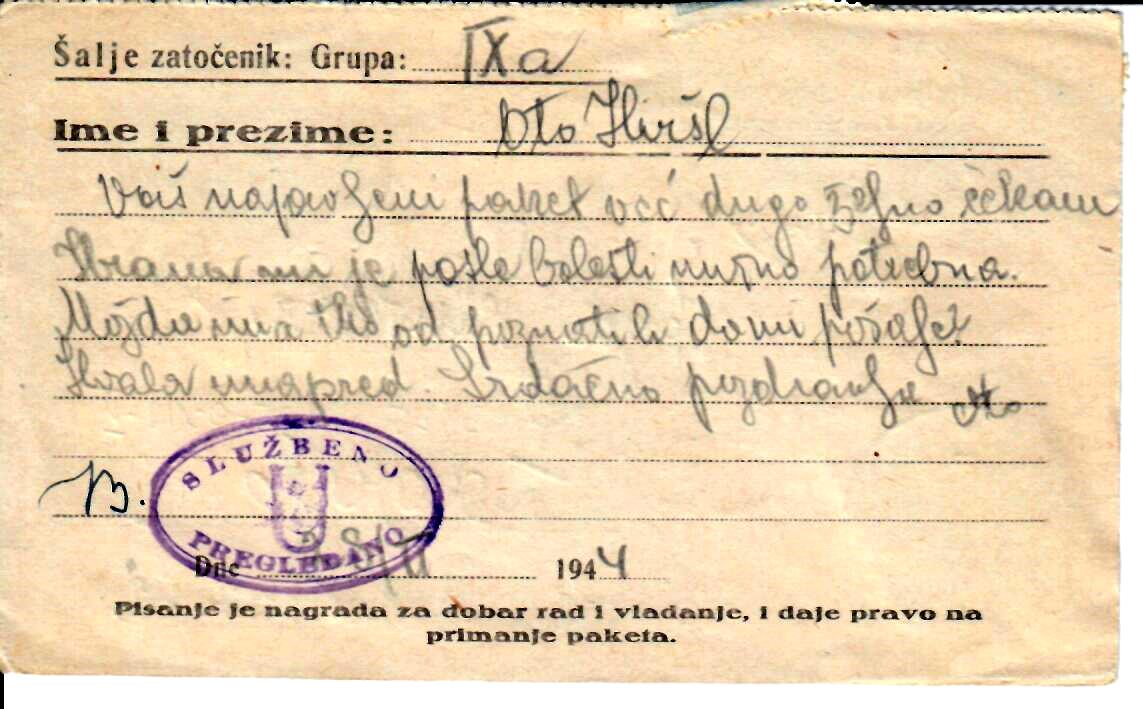 Šalje zatočenik: Grupa: IXa
Ime i prezime: Oto Hiršl
Vaš najavljeni paket već dugo željno čekam
Hrana mi je posle bolesti nužno potrebna.
Možda mi od poznatih dami pošalje?
Hvala unapred. Srdačno pozdravlja Oto
B.
SLUŽBENO
U
PREGLEDANO
Dne 18/II 1944
Pisanje je nagrada za dobar rad i vladanje, i daje pravo na
primanje paketa.